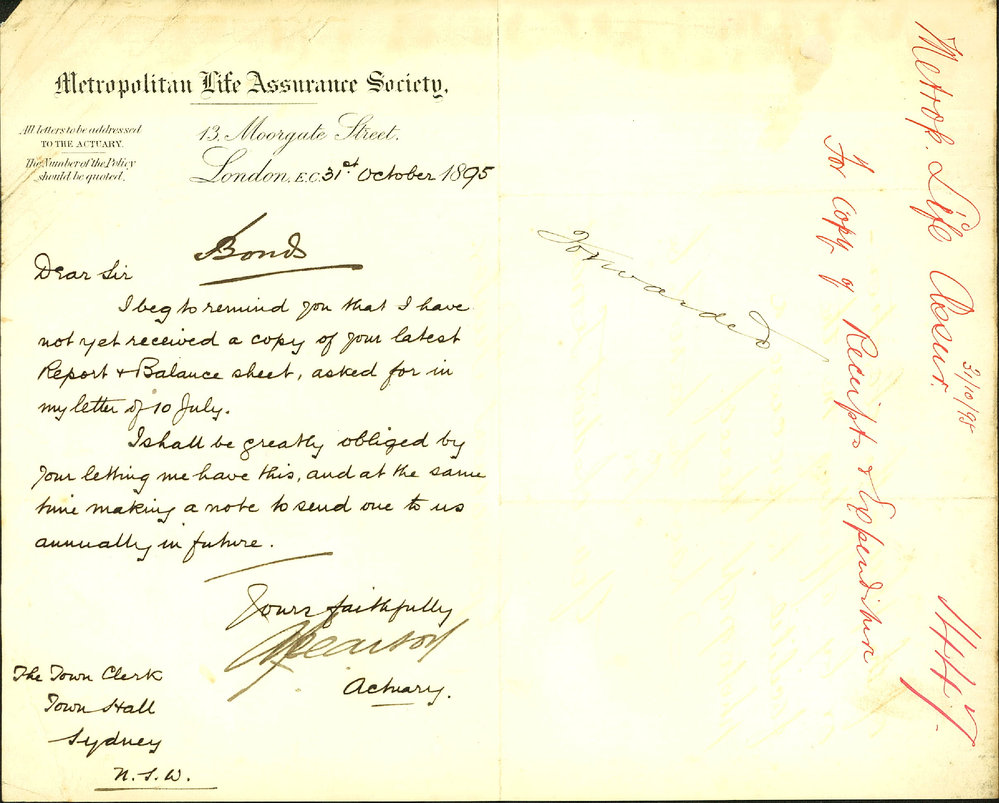 Metropolitan Life Assurance Society,
All letters to be addressed
TO THE ACTUARY.
The Number of the Policy
should be quoted.
13, Moorgate Street,
London, E.C. 31st October 1895
Bonds
Dear Sir
I beg to remind you that I have
not yet received a copy of your latest
Report & Balance sheet, asked for in
my letter of 10 July.
I shall be greatly obliged by
your letting me have this, and at the same
time making a note to send one to us
annually in future.
Yours faithfully
Actuary.
The Town Clerk
Town Hall
Sydney
N.S.W.
Forwarded
Metrop. Life Assur.
31/10/95
For copy of Receipts & Expenditure